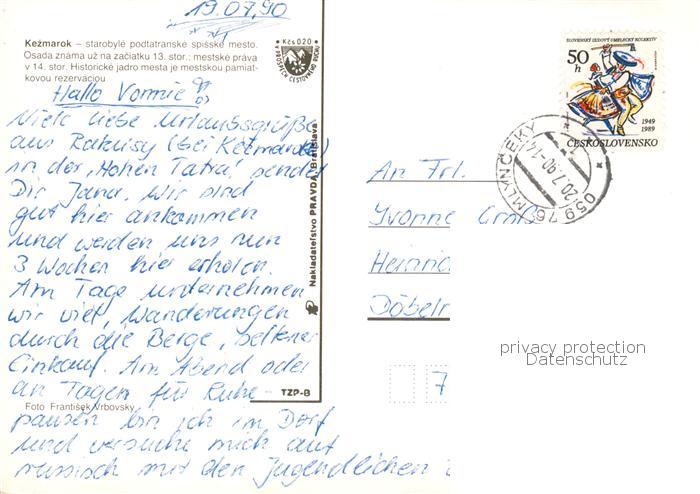 19.07.90
Kežmarok – starobylé podtatranské spišské mesto.
Osada známa už na začiatku 13. stor.; mestské práva
v 14. stor. Historické jadro mesta je mestskou pamiat-
kovou rezerváciou
Kčs 0,20
Hallo Vonnie
Viele liebe Urlaubsgrüße
aus Rakúsy (bei Kežmarok)
in der "Hohen Tatra" sendet
Dir Jana. Wir sind
gut hier ankommen
und werden uns nun
3 Wochen hier erholen.
Am Tage unternehmen
wir viel, Wanderungen
durch die Berge, seltener
Einkauf. Am Abend oder
an Tagen für Ruhe-
pausen bin ich im Dorf
und versuche mich auf
russisch mit den Jugendlichen
Foto František Vrbovský
TZP-B
Nakladateľstvo PRAVDA Bratislava
SLOVENSKÝ ĽUDOVÝ UMELECKÝ KOLEKTÍV
50 h
1949
1989
ČESKOSLOVENSKO
059 76 MLYNČEKY
20.7.90-14
An Frl.
Yvonne
Heinric
Döbeln
7
privacy protection
Datenschutz